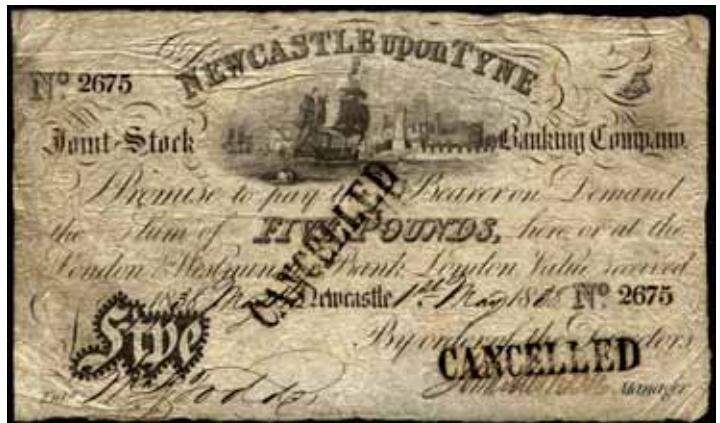 NEWCASTLE upon TYNE
Nº 2675
Joint-Stock Banking Company.
I Promise to pay the Bearer on Demand
the Sum of FIVE POUNDS, here or at the
London & Westminster Bank London Value received
1838 May Newcastle 1st May 1838 Nº 2675
Five
By order of the Directors
CANCELLED
CANCELLED
Manager